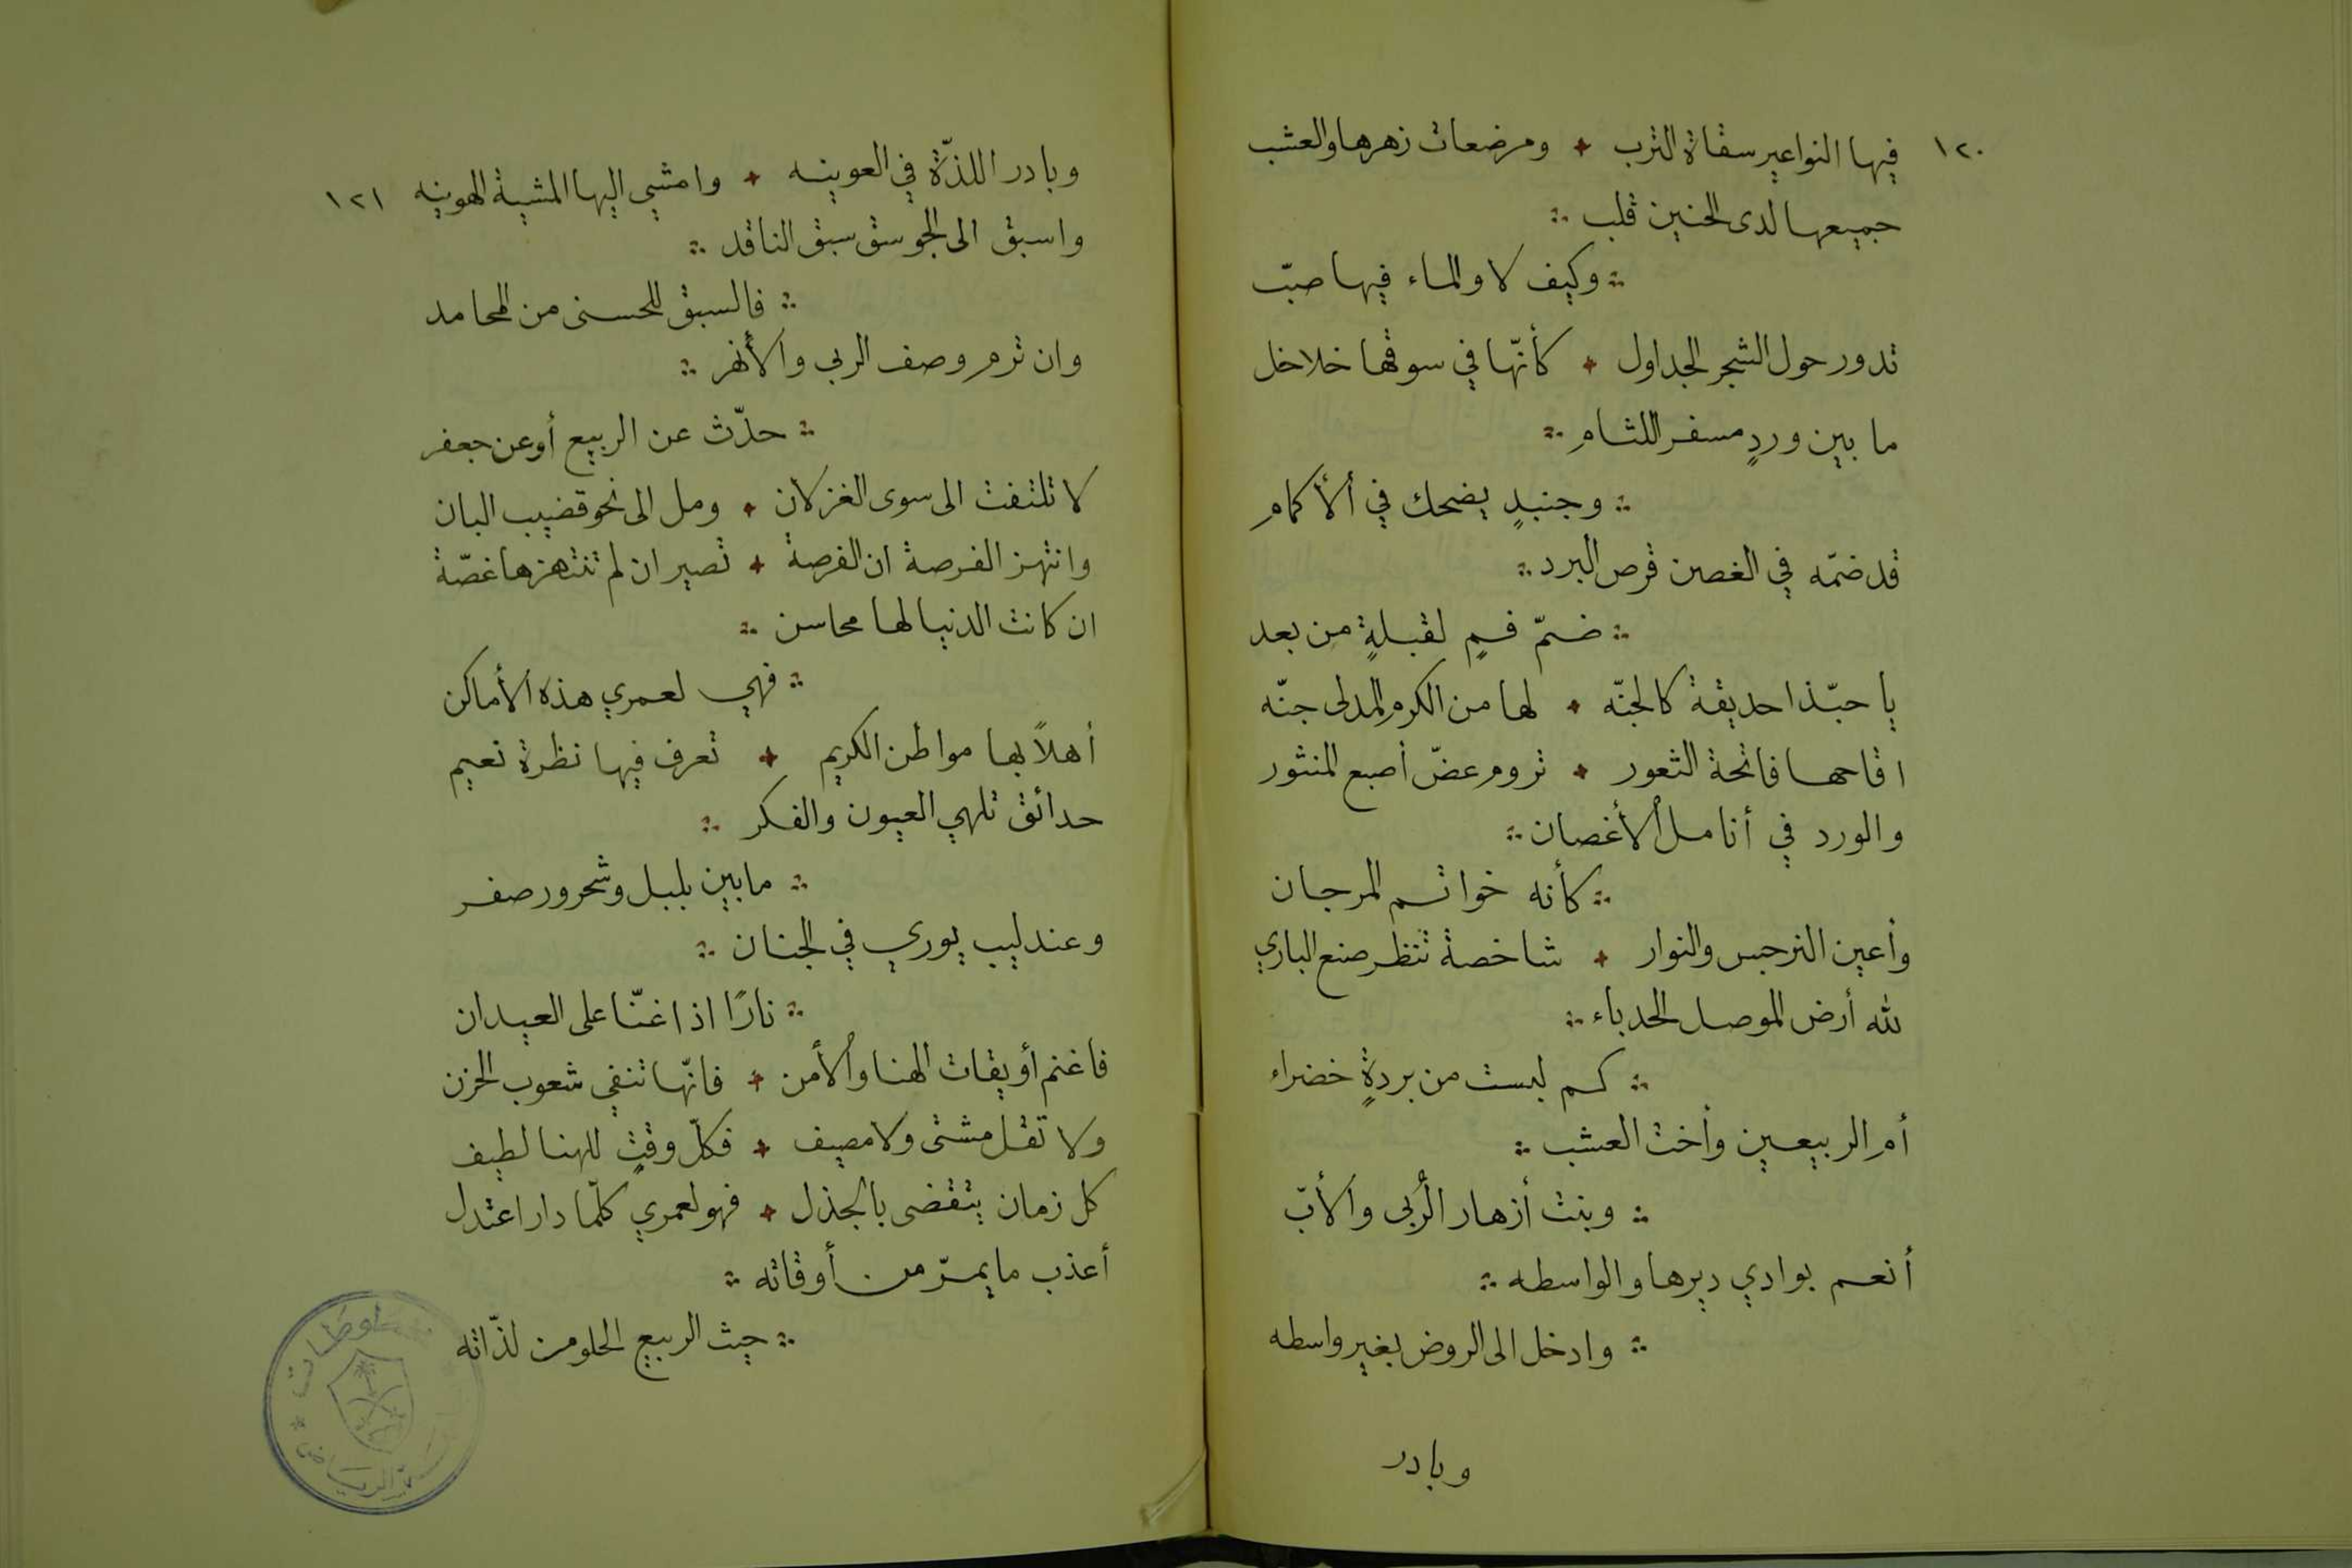 ١٢٠
فيها النواعير سقاة الترب + ومرضعات زهرها والعشب
جميعها لدى الحنين قلب
وكيف لا والماء فيها صبّ
تدور حول الشجر الجداول + كأنّها في سوقها خلاخل
ما بين وردٍ مسفر اللثام
وجنبدٍ يضحك في ألأكمام
قد ضمّه في الغصن قرص البرد
ضمّ فمٍ لقبلةٍ من بعد
يا حبّذا حديقة كالجنّه + لها من الكرم المدلى جنّه
اقاحها فاتحة الثغور + تروم عضّ أصبع المنثور
والورد في أنامل ألأغصان
كأنه خواتم المرجان
وأعين النرجس والنوار + شاخصة تنظر صنع الباري
لله أرض الموصل الحدباء
كم لبست من بردةٍ خضراء
أم الربيعين وأخت العشب
وبنت أزهار الرُبى وألأبّ
أنعم بوادي ديرها والواسطه
وادخل الى الروض بغير واسطه
وبادر
وبادر اللذّة في العوينه + وامشي اليها المشية الهوينه ١٢١
واسبق الى الجوسق سبق الناقد
فالسبق للحسنى من المحامد
وان ترم وصف الربى وألأنهر
حدّث عن الربيع أو عن جعفر
لا تلتفت الى سوى الغزلان + ومل الى نحو قضيب البان
وانتهز الفرصة ان الفرصة + تصير ان لم تنتهزها غصّة
ان كانت الدنيا لها محاسن
فهي لعمري هذه ألأماكن
أهلاً بها مواطن الكريم + تعرف فيها نظرة نعيم
حدائق تلهي العيون والفكر
ما بين بلبل وشحرور صفر
وعندليب يوري في الجنان
نارًا اذا غنّا على العيدان
فاغنم أويقات الهنا وألأمن + فانّها تنفي شعوب الحزن
ولا تقل مشتى ولا مصيف + فكلّ وقتٍ للهنا لطيف
كل زمان يتقضى بالجذل + فهو لعمري كلّما دار اعتدل
أعذب ما يمرّ من أوقاته
حيث الربيع الحلو من لذّاته
الرياض